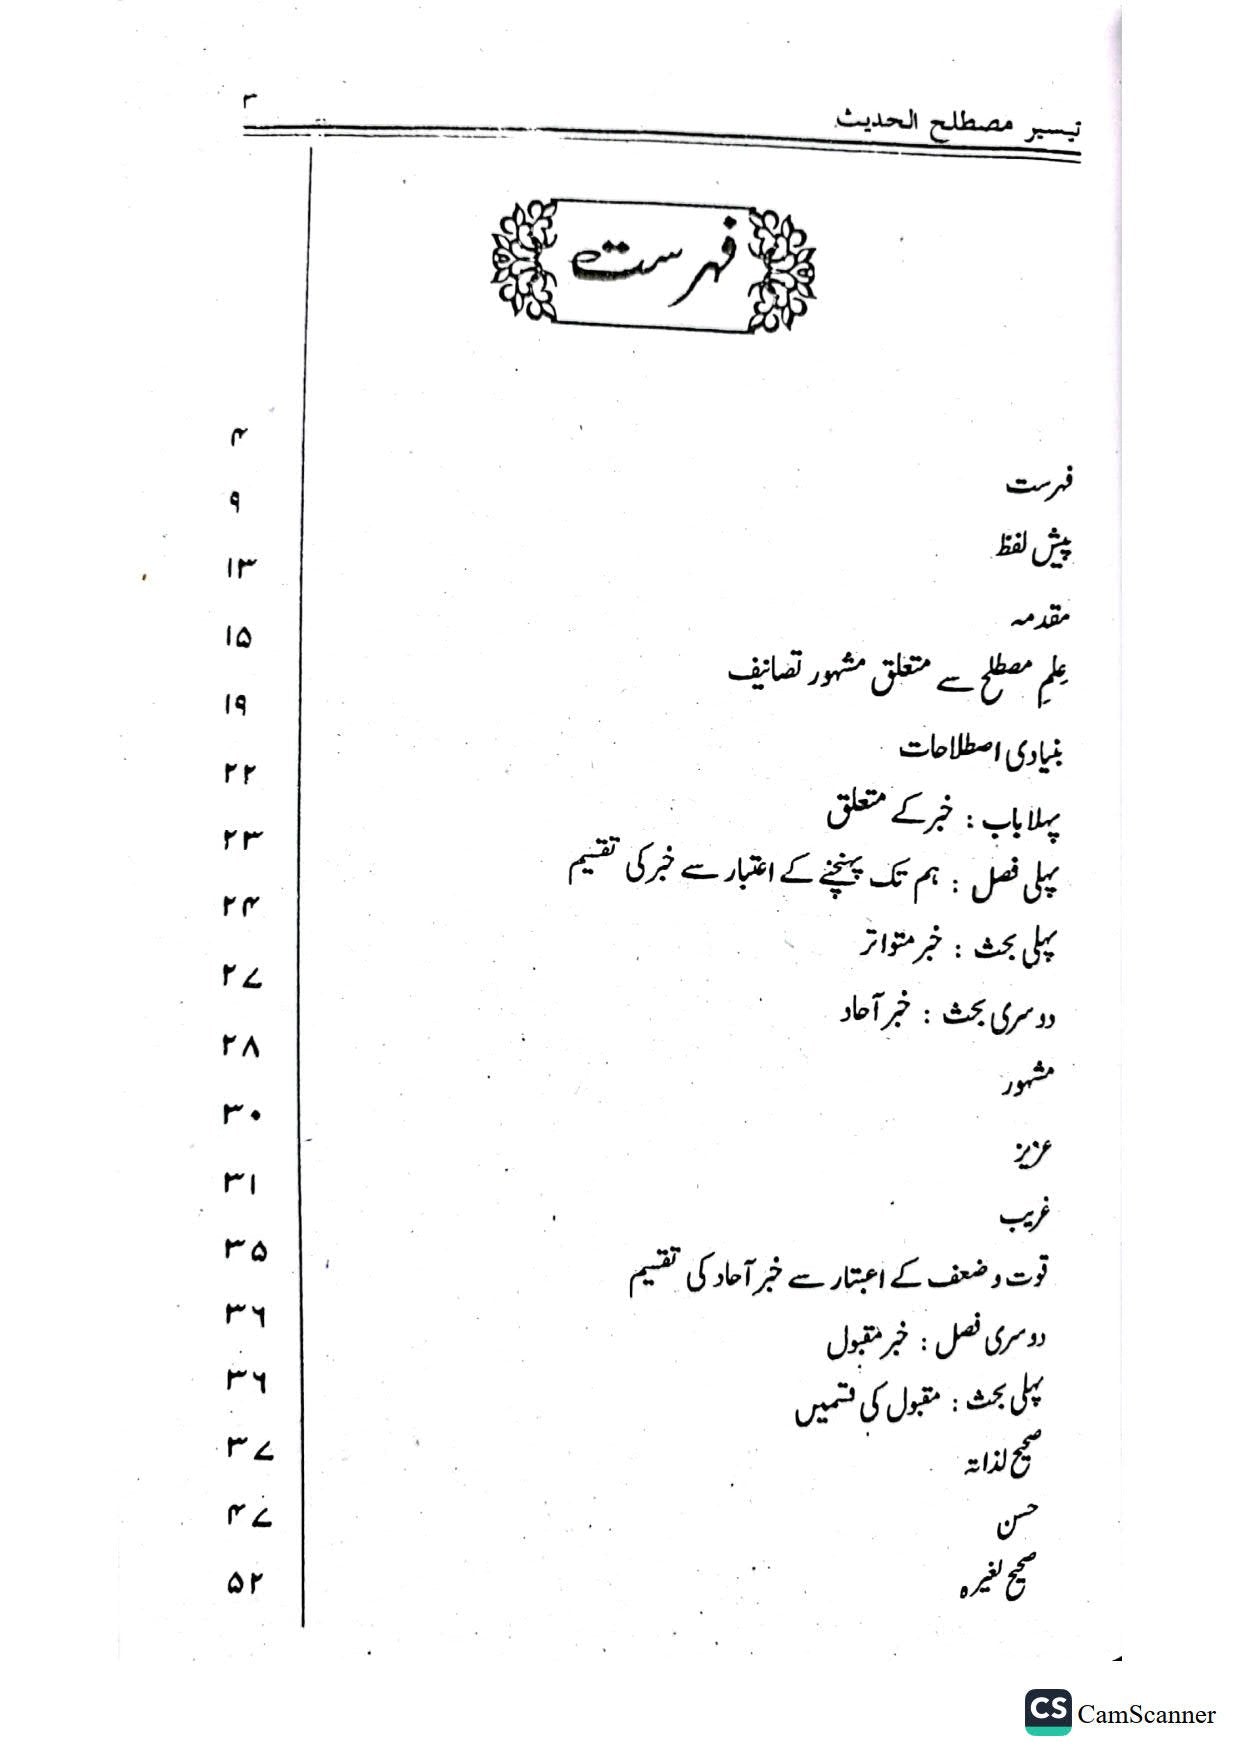 تیسیر مصطلح الحدیث ۳
فہرست
فہرست ۴
پیش لفظ ۹
مقدمہ ۱۳
علمِ مصطلح سے متعلق مشہور تصانیف ۱۵
بنیادی اصطلاحات ۱۹
پہلا باب : خبر کے متعلق ۲۲
پہلی فصل : ہم تک پہنچنے کے اعتبار سے خبر کی تقسیم ۲۳
پہلی بحث : خبر متواتر ۲۴
دوسری بحث : خبر آحاد ۲۷
مشہور ۲۸
عزیز ۳۰
غریب ۳۱
قوت و ضعف کے اعتبار سے خبر آحاد کی تقسیم ۳۵
دوسری فصل : خبر مقبول ۳۶
پہلی بحث : مقبول کی قسمیں ۳۶
صحیح لذاتہ ۳۷
حسن ۴۷
صحیح لغیرہ ۵۲
CS CamScanner